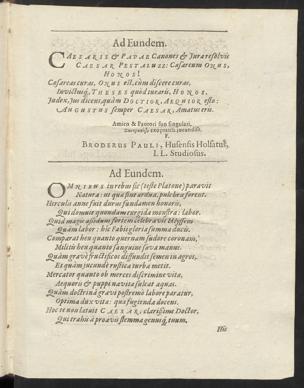 Ad Eundem.
CAESARIS & PAPAE Canones & Jura resolvis
CAESAR PESTALUZ: Caesareum ONUS,
HONOS!
Caesareas curas, ONUS est, cùm discere curas,
Invictusq́, THESES quòd tuearis, HONOS.
Judex, Jus dicens, quàm DOCTIOR, AEQUIOR esto:
AUGUSTUS semper CAESAR, Amatus eris.
Amico & Fautori suo singulari,
F.
BRODERUS PAULI, Husensis Holsatus,
I. L. Studiosus.
Ad Eundem.
OMNIBUS in rebus sic (teste Platone) paravit
Natura: ut quae sint ardua, pulchra forent.
Herculis anne fuit durus fundamen honoris,
Qui domuit quondam turgida monstra: labor.
Quid magis aisidum fortem celebravit Ulyssem
Quàm labor: hic Fabii gloria summa ducis.
Comparat hen quanto quernam sudore coronam,
Militis heu quanto sanguine saeva manus.
Quàm gravè fructificos diffundit semen in agros,
Et quàm jucundè rustica turba metit.
Mercator quanto ob merces discrimine vitae,
Aequoris & puppi navita sulcat aquas.
Quàm doctrinâ gravi postremò labore paratur,
Optima dux vitae: quò fugienda docens.
Hoc te non latuit CAESAR, clarissime Doctor,
Qui trahis à proavis stemma genusq́, tuum,
His